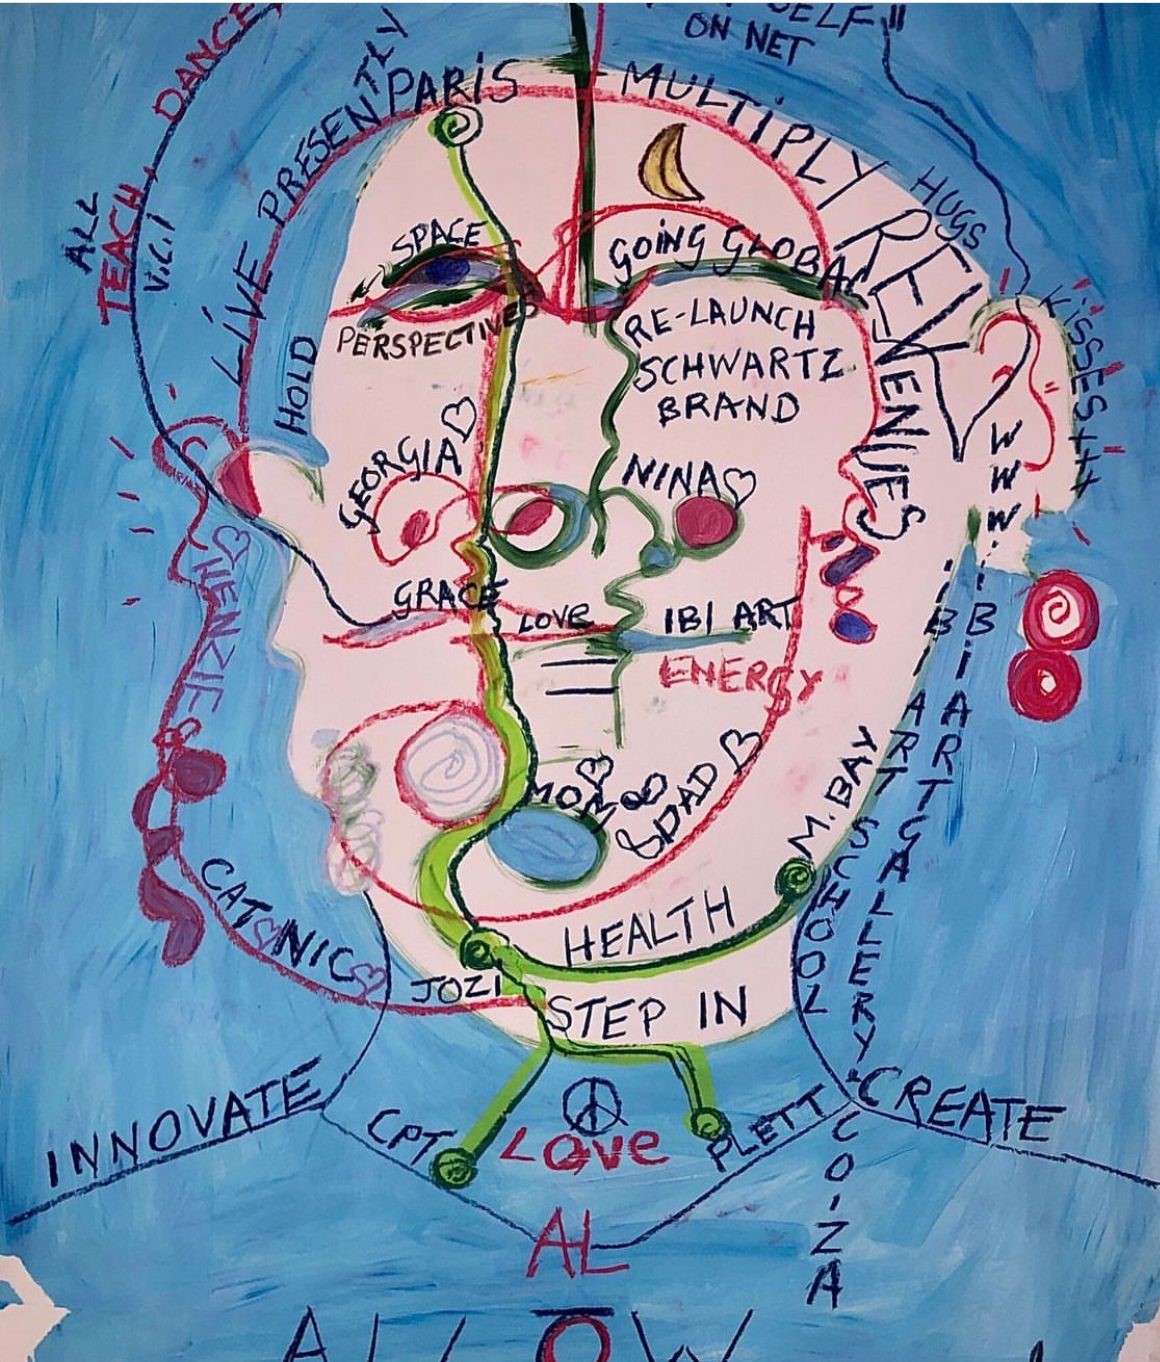 ON NET
DANCE
LIVE PRESENTLY
PARIS
MULTIPLY REVENUES
HUGS
KISSES+++
ALL
TEACH
V.C.I
HOLD
SPACE
PERSPECTIVES
GOING GLOBAL
RE-LAUNCH
SCHWARTZ
BRAND
GEORGIA
NINA
GRACE
LOVE
IBI ART
ENERGY
HENZIE
DAD
M.BAY
CATONIC
HEALTH
JOZI
STEP IN
INNOVATE
CPT
LOVE
PLETT
CREATE
IBI ART SCHOOL
WWW.IBIARTGALLERY.COIZA
AL
ALLOW